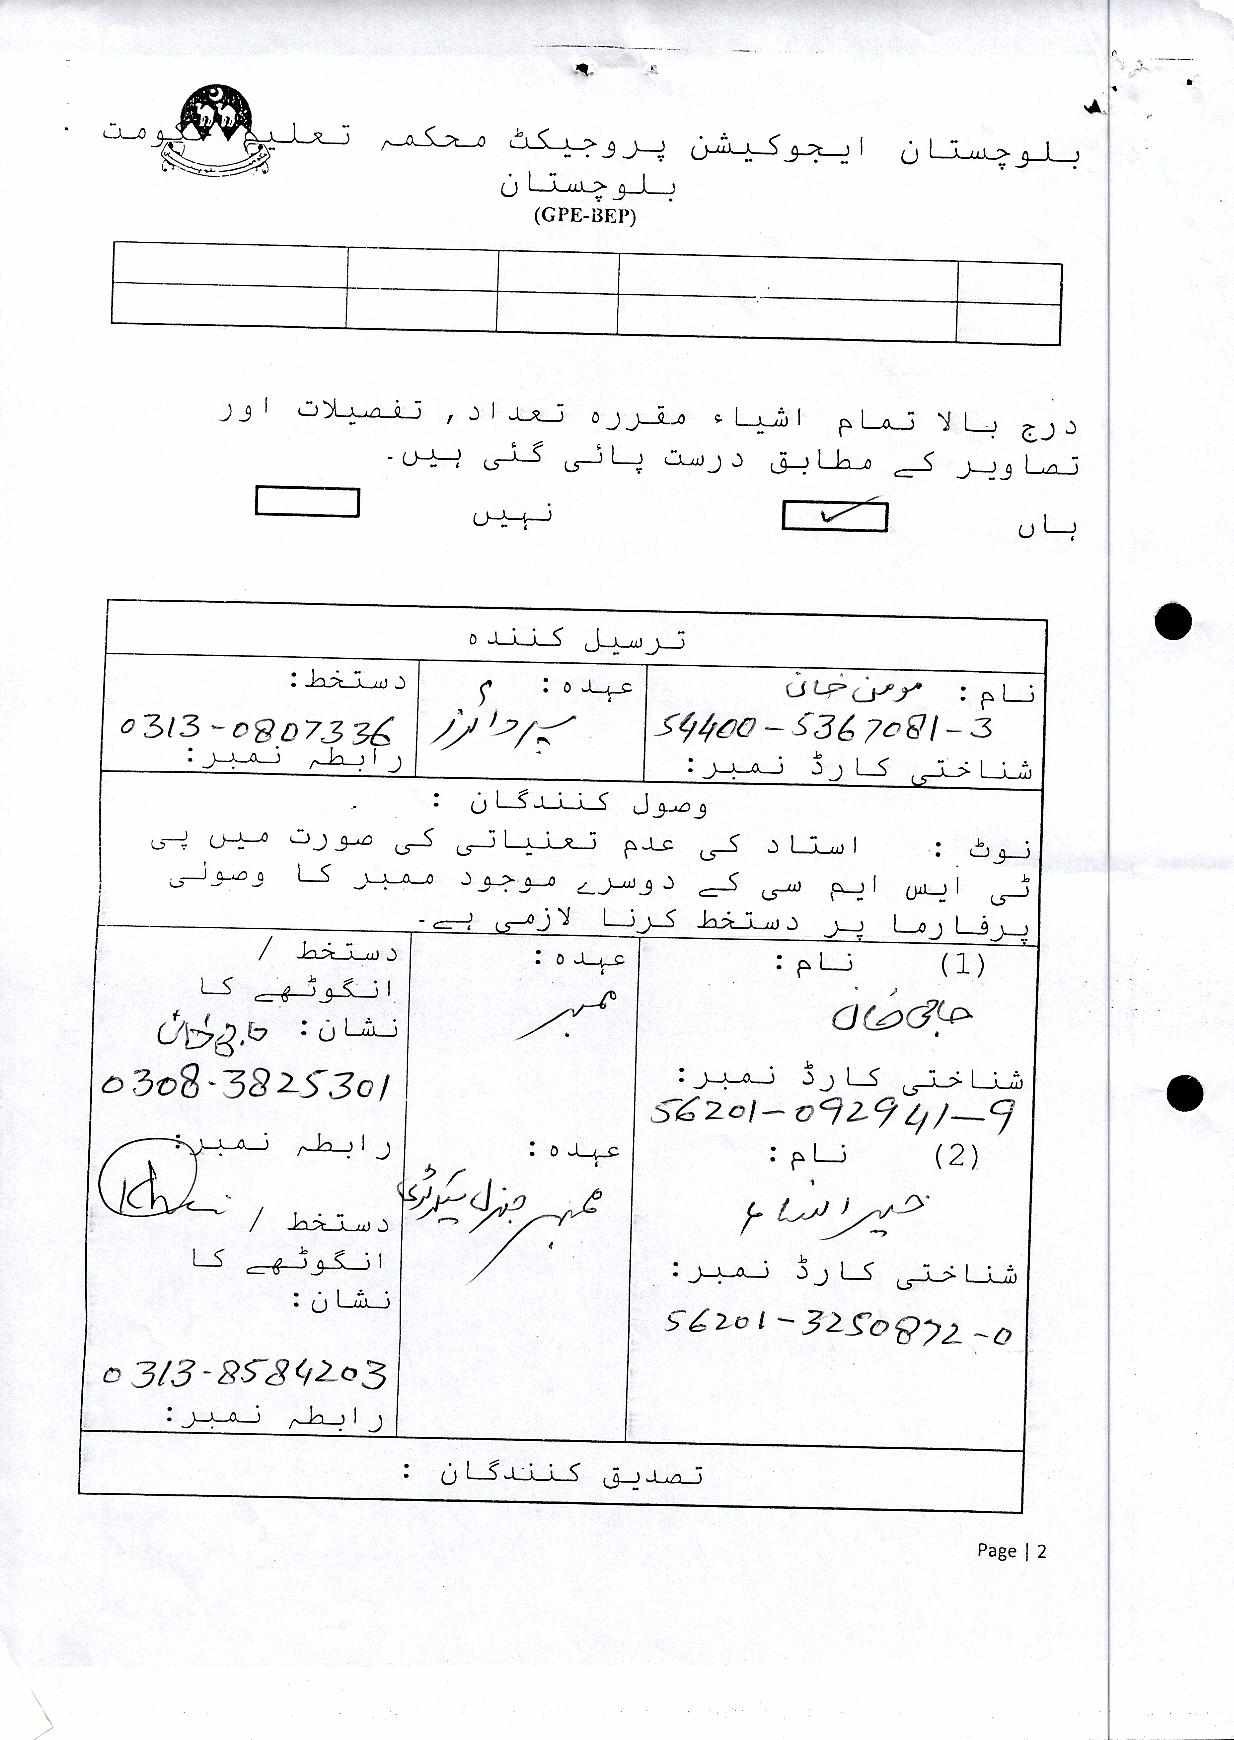 بلوچستان ایجوکیشن پروجیکٹ محکمہ تعلیم حکومت
بلوچستان
(GPE-BEP)
درج بالا تمام اشیاء مقررہ تعداد, تفصیلات اور
تصاویر کے مطابق درست پائی گئی ہیں۔
ہاں ✓ نہیں
ترسیل کنندہ
نام: مومن خان عہدہ: دستخط:
54400-5367081-3 0313-0807336
شناختی کارڈ نمبر: رابطہ نمبر:
وصول کنندگان :
نوٹ : استاد کی عدم تعنیاتی کی صورت میں پی
ٹی ایس ایم سی کے دوسرے موجود ممبر کا وصولی
پرفارما پر دستخط کرنا لازمی ہے۔
(1) نام: عہدہ: دستخط /
حاجی خان ممبر انگوٹھے کا
نشان: حاجی خان
شناختی کارڈ نمبر: 0308-3825301
56201-092941-9
(2) نام: عہدہ: رابطہ نمبر:
ممبر جنرل سیکرٹری دستخط /
شناختی کارڈ نمبر: انگوٹھے کا
نشان:
56201-3250872-0
0313-8584203
رابطہ نمبر:
تصدیق کنندگان :
Page | 2